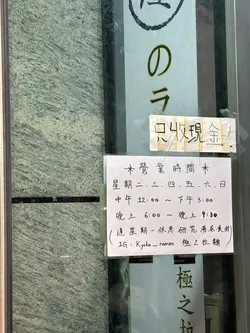 のラ
只收現金!
*營業時間*
星期二.三.四.五.六.日
中午 12:00 ~ 下午 3:00
晚上 6:00 ~ 晚上 9:30
(逢星期一休息 研究
IG: Kyoku_ramen 極之拉麵)
極之拉